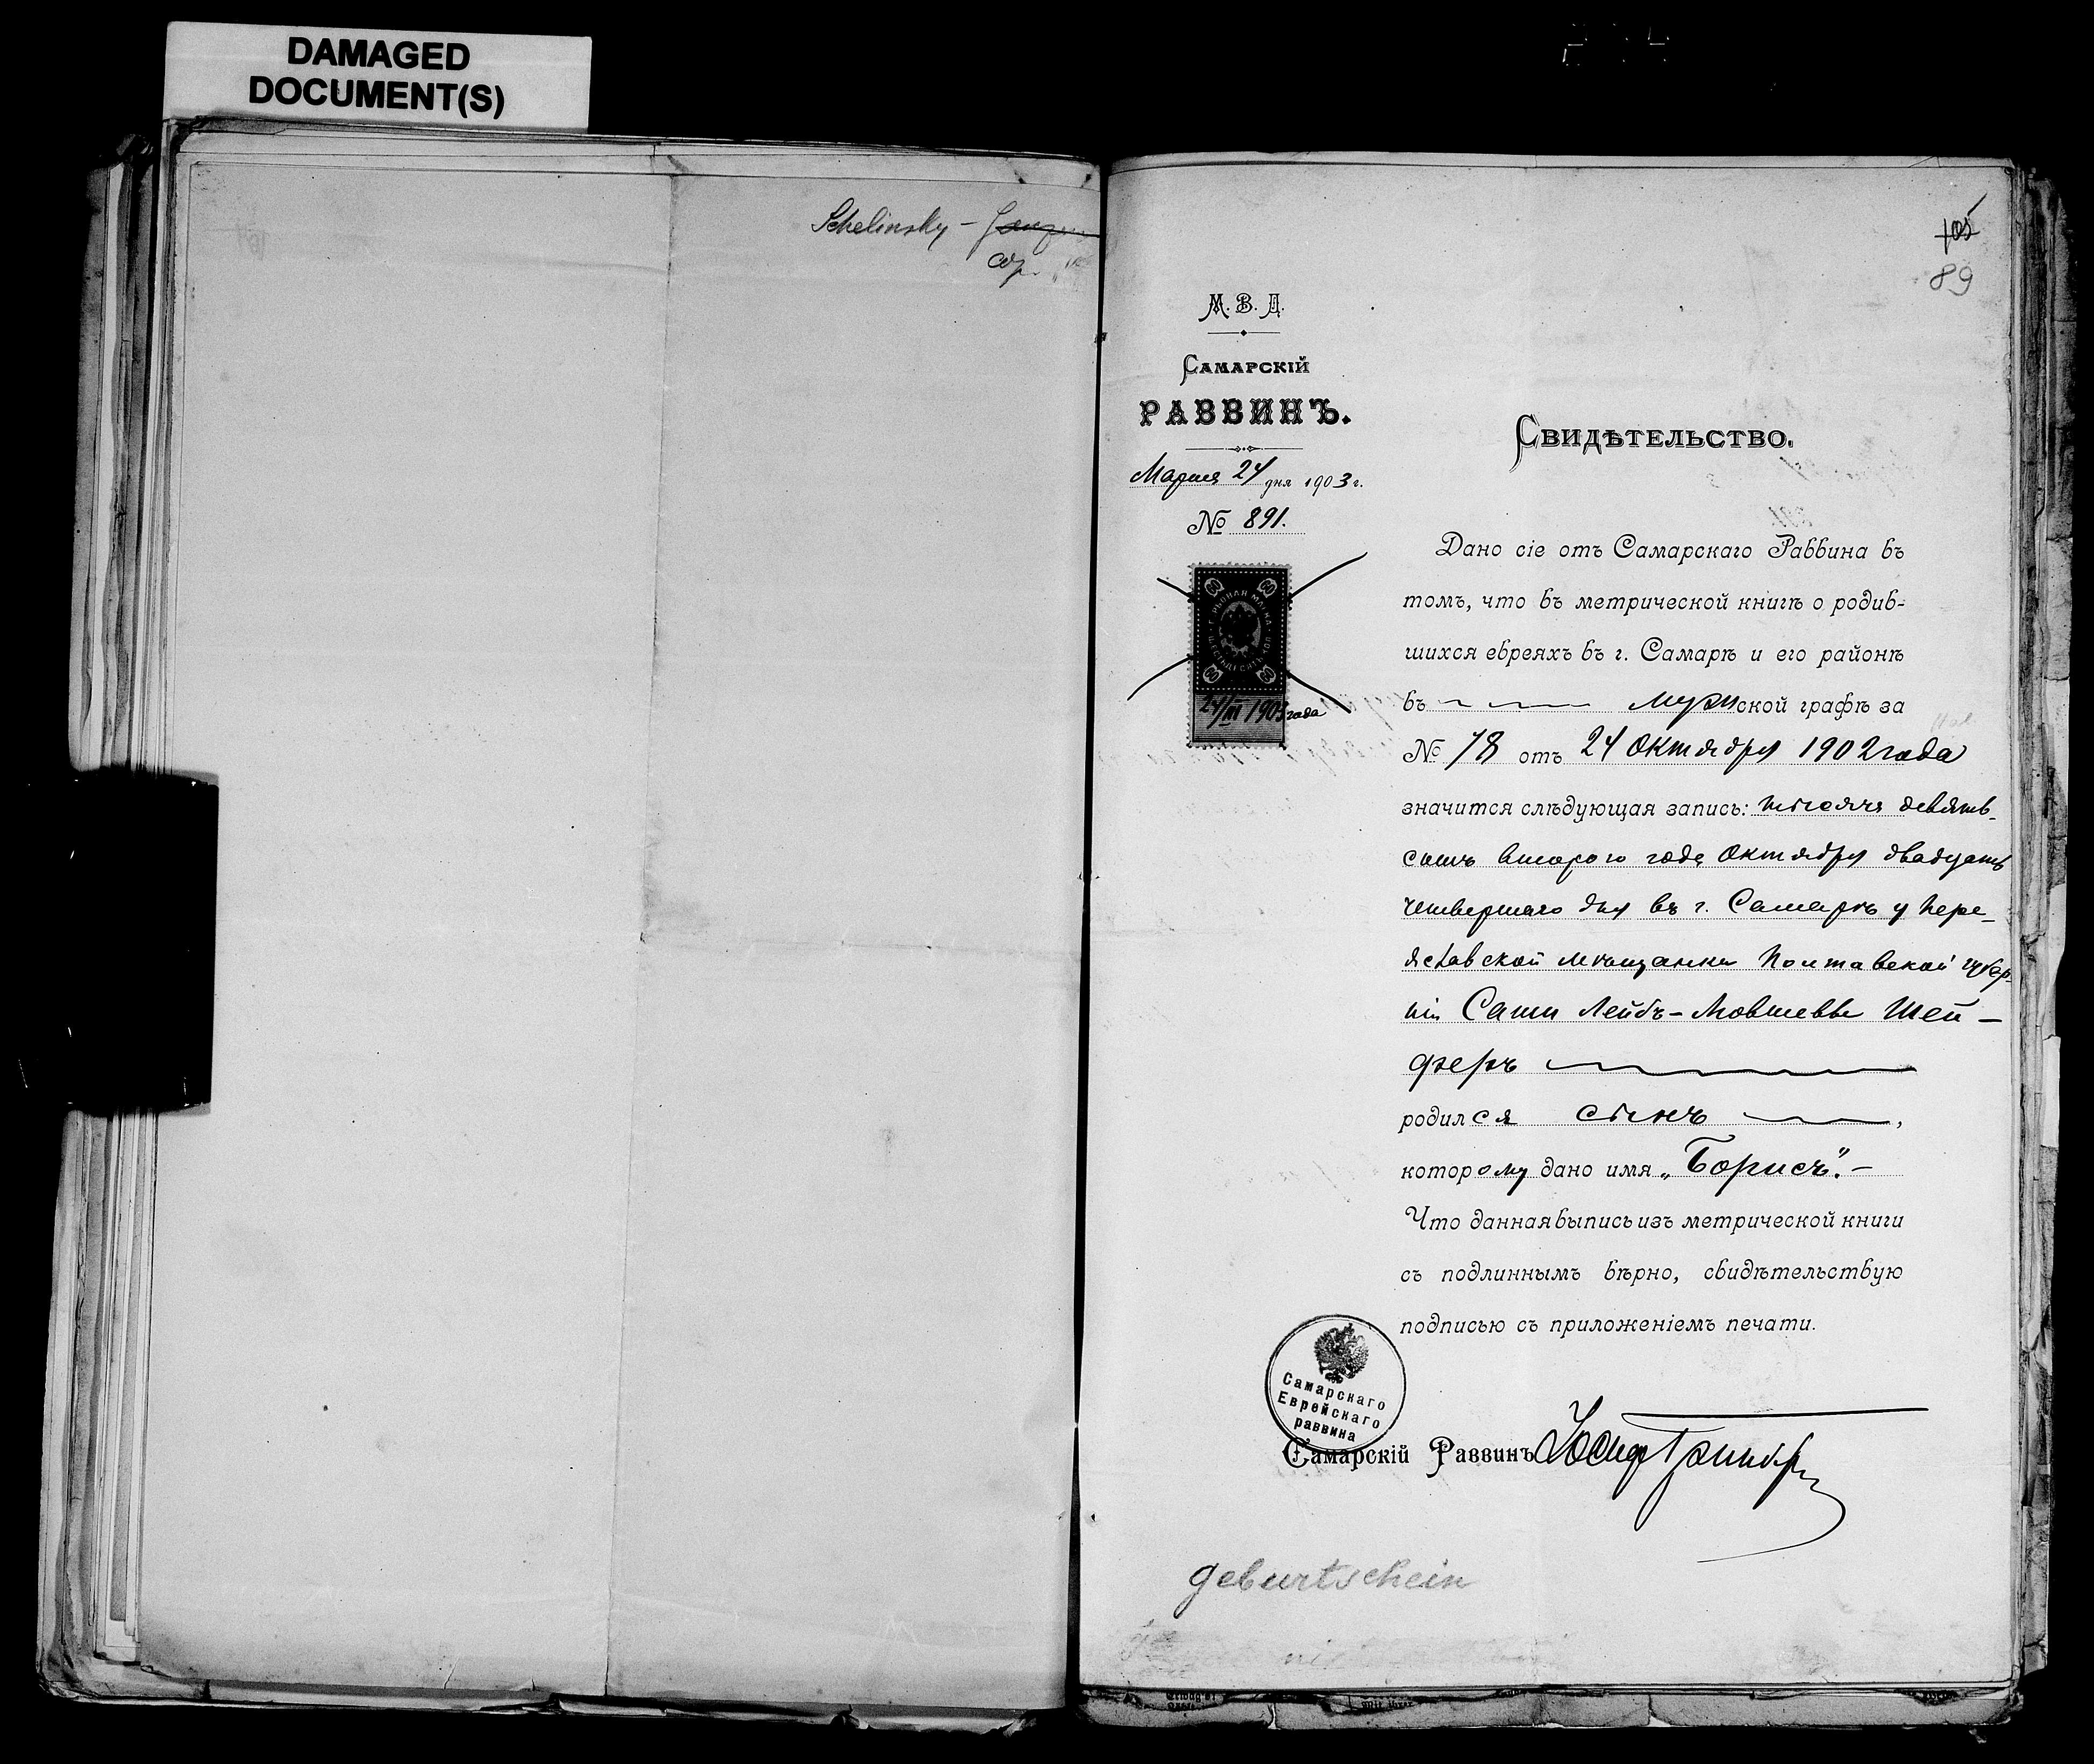 DAMAGED
DOCUMENT(S)
Schelinsky –
105
89
М. В. Д.
Самарскій
РАВВИНЪ.
Марта 24 дня 1903 г.
№ 891.
ГЕРБОВАЯ МАРКА
ШЕСТЬДЕСЯТЪ КОП.
60 60
60 60
24/III 1903 года
Свидѣтельство.
Дано сіе отъ Самарскаго Раввина въ
томъ, что въ метрической книгѣ о родив-
шихся евреяхъ въ г. Самарѣ и его районѣ
въ мужской графѣ за
№ 78 отъ 24 Октября 1902 года
значится слѣдующая запись: тысяча девять-
сотъ второго года Октября двадцать
четвертаго дня въ г. Самарѣ у Пере-
яславской мѣщанки Полтавской губер-
ніи Саши Лейбъ-Мовшевны Шей-
феръ
родился сынъ ,
которому дано имя „Борисъ“. –
Что данная выпись изъ метрической книги
съ подлиннымъ вѣрно, свидѣтельствую
подписью съ приложеніемъ печати.
Самарскаго
Еврейскаго
раввина
Самарскій Раввинъ
geburtschein